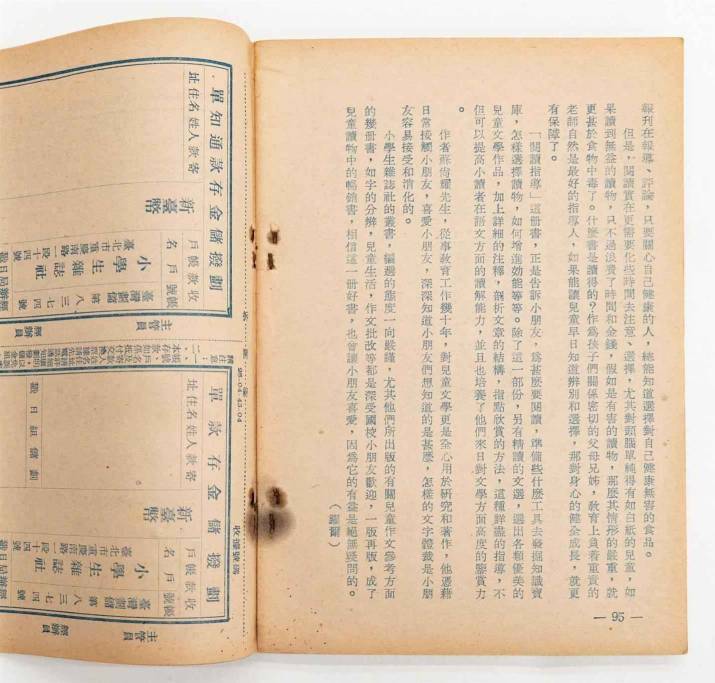 — 95 —
報刊在報導、評論,只要關心自己健康的人,總能知道選擇對自己健康無害的食品。
但是,閱讀實在更需要化些時間去注意、選擇,尤其對頭腦單純得有如白紙的兒童,如
果讀到無益的讀物,只不過浪費了時間和金錢,假如是有害的讀物,那麼其情形的嚴重,就
更甚於食物中毒了。什麼書是讀得的?作為孩子們關係密切的父母兄姊,教育上負着重責的
老師自然是最好的指導人,如果能讓兒童早日知道辨別和選擇,那對身心的健全成長,就更
有保障了。
「閱讀指導」這册書,正是告訴小朋友,爲甚麼要閱讀,準備些什麼工具去發掘知識寶
庫,怎樣選擇讀物,如何增進効能等等。除了這一部份,另有精讀的文選,選出各類優美的
兒童文學作品,加上詳細的注釋,剖析文章的結構,指點欣賞的方法,這種詳盡的指導,不
但可以提高小讀者在語文方面的讀解能力,並且也培養了他們來日對文學方面高度的鑒賞力
。
作者蘇尙耀先生,從事教育工作幾十年,對兒童文學更是全心用於研究和著作,他憑藉
日常接觸小朋友,喜愛小朋友,深深知道小朋友們想知道的是甚麼,怎樣的文字體裁是小朋
友容易接受和消化的。
小學生雜誌社的叢書,編選的態度一向嚴謹,尤其他們所出版的有關兒童作文參考方面
的幾册書,如字的分辨,兒童生活,作文批改等都是深受國校小朋友歡迎,一版再版,成了
兒童讀物中的暢銷書,相信這一册好書,也會讓小朋友喜愛,因為它的有益是絕無疑問的。
劃撥儲金存款通知單
收款帳戶
帳號
戶名
臺灣劃儲第八三七四號
小學生雜誌社
臺北市重慶南路
新臺幣
寄款人姓名住址
主管員
經辦員
經辦局日戳
98-04-43-04
劃撥儲金存款單
收款帳戶
帳號
戶名
臺灣劃儲第八三七四號
小學生雜誌社
臺北市重慶南路
新臺幣
寄款人姓名住址
劃儲組日戳
收據號碼
主管員
經辦員
經辦局日戳